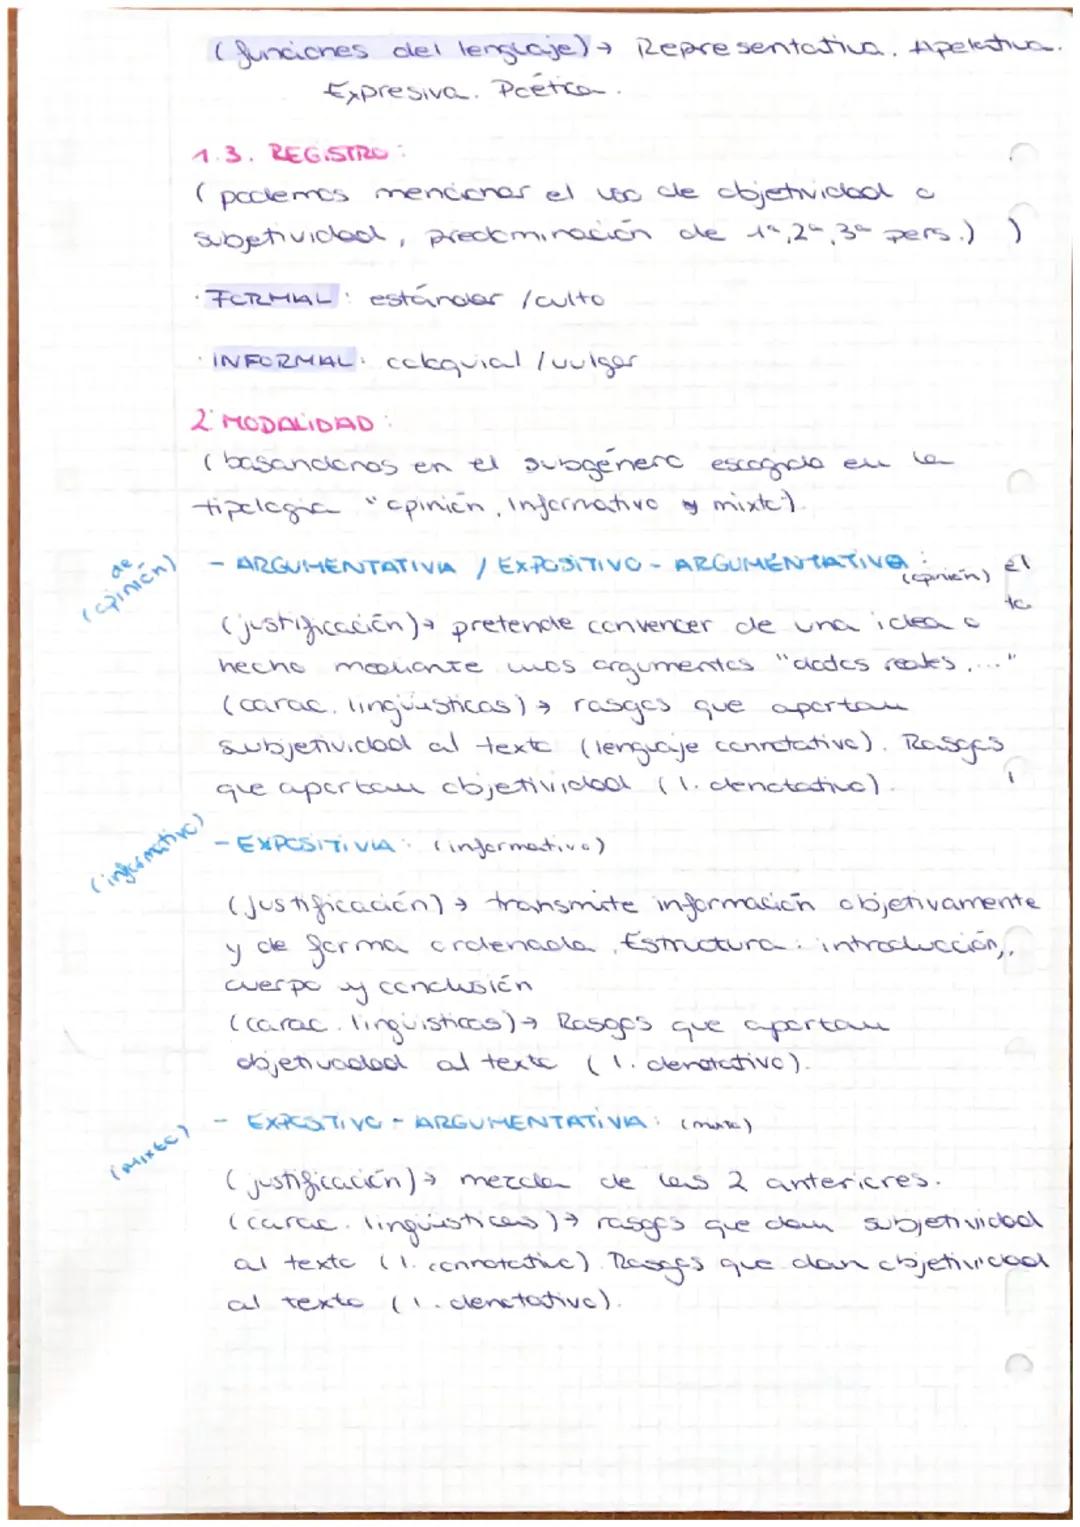 (funciones del lenguaje) → Representativa. Apelativa.
Expresiva. Poética.
1.3. REGISTRO:
(podemos mencionar el uso de objetividad o
subjetividad, predominación de 1ª, 2ª, 3ª pers.) )
· FORMAL: estándar / culto
· INFORMAL: coloquial / vulgar
2. MODALIDAD:
(basandonos en el subgénero escogido en la
tipologia "opinión, informativo y mixto").
(de opinión)
- ARGUMENTATIVA / EXPOSITIVO - ARGUMENTATIVO: (opinión)
el
to
(justificación) → pretende convencer de una idea o
hecho mediante unos argumentos "datos reales,..."
(carac. lingüísticas) → rasgos que aportan
subjetividad al texto (lenguaje connotativo). Rasgos
que aportan objetividad (l. denotativo).
(informativo)
- EXPOSITIVA: (informativo)
(justificación) → transmite información objetivamente
y de forma ordenada. Estructura: introducción,
cuerpo y conclusión
(carac. lingüisticas) → Rasgos que aportan
objetividad al texto (l. denotativo).
(mixto)
- EXPOSITIVO - ARGUMENTATIVA: (mixto)
(justificación) → mezcla de las 2 anteriores.
(carac. lingüisticas) → rasgos que dan subjetividad
al texto (l. connotativo). Rasgos que dan objetividad
al texto (l. denotativo).